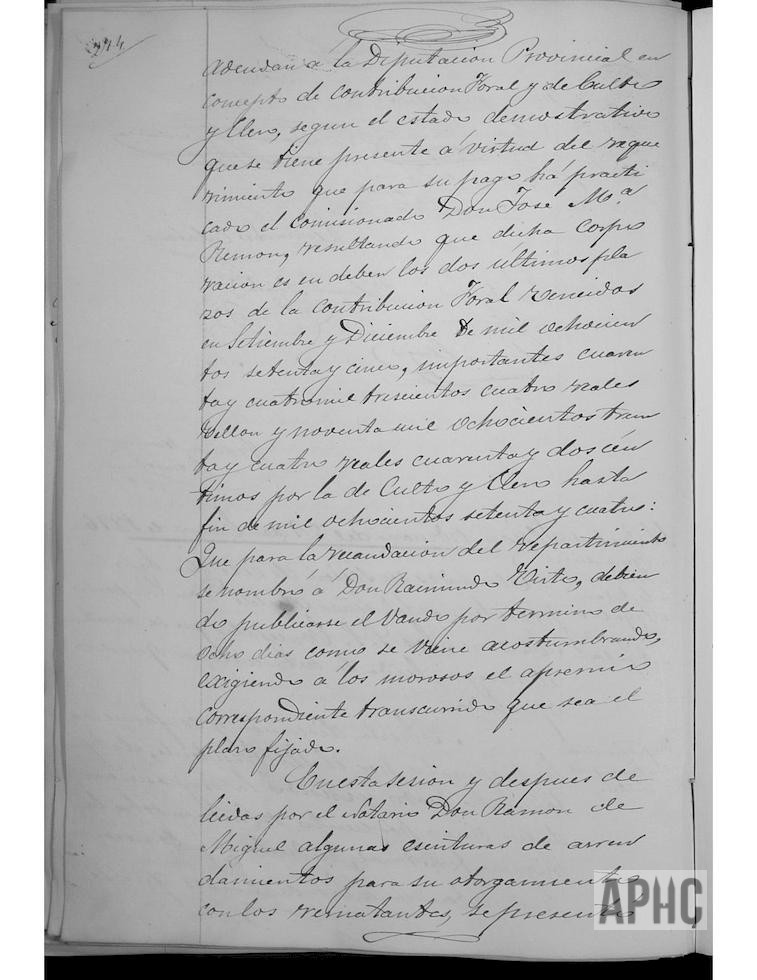 274
adeudan á la Diputacion Provincial en
concepto de contribucion Foral y de Culto
y Clero, segun el estado demostrativo
que se tiene presente á virtud del reque
rimiento que para su pago ha practi
cado el comisionado Don José M.a
Remon, resultando que dicha corpo
racion es en deber los dos ultimos pla
zos de la contribucion Foral vencidos
en Setiembre y Diciembre de mil ochocien
tos setenta y cinco, importantes cuaren
ta y cuatro mil trescientos cuatro reales
vellon y noventa mil ochocientos trein
ta y cuatro reales cuarenta y dos cén
timos por la de Culto y Clero hasta
fin de mil ochocientos setenta y cuatro:
Que para la recaudacion del repartimiento
se nombró á Don Raimundo debien
do publicarse el bando por termino de
ocho dias como se viene acostumbrando,
exigiendo á los morosos el apremio
correspondiente transcurrido que sea el
plazo fijado.
En esta sesion y despues de
leidas por el Notario Don Ramon de
Miguel algunas escrituras de arren
damientos para su otorgamiento
con los rematantes, se presentó
APHC